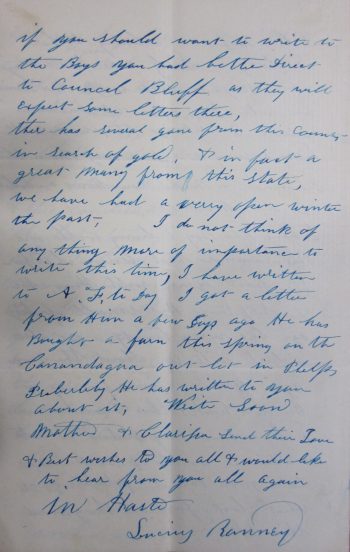 if you should want to write to
the Boys you had bettie Direct
to Council Bluff as they will
expect some letters there,
ther has several gone from this County
in search of gold, & in fact a
great many from this State,
we have had a verry open winter
the past, I do not think of
any thing more of importance to
write this time, I have written
to A. F. to Day I got a letter
from Him a few Days ago He has
Bought a farm this spring on the
Canandagua out let in Phelps
Proberbly He has written to you
about it, Write Soon
Mother & Clarissa Send their Love
& Best wishes to you all & would like
to hear from you all again
in Haste
Lucius Ranney